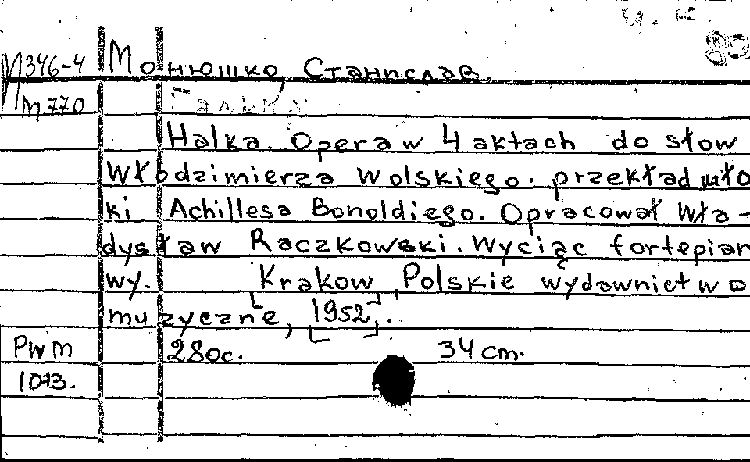 М346-4 Монюшко, Станислав.
М770 Галька
Halka. Opera w 4 aktach do słow
Włodzimierza Wolskiego. przekład wło
ki Achillesa Bonoldiego. Opracował Wła-
dysław Raczkowski. Wyciąg fortepian
wy. Krakow, Polskie wydawnictwo
muzyczne, [1952].
PWM 280c. 34 cm.
1013.